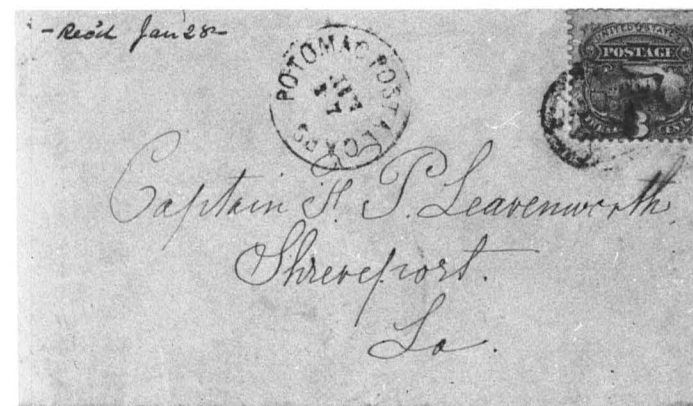 - Rec'd Jan 28 -
POTOMAC POSTAL CARS
UNITED STATES
POSTAGE
3
Captain F. P. Leavenworth,
Shreveport.
La.